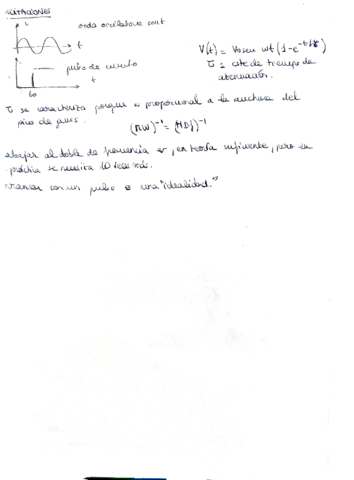 onda oscilatoria cont
t
V(t) = Vo sen ωt (1-e^-t/τ)
pulso de
τ = cte de tiempo de
atenuación.
t
to
τ se caracteriza porque es proporcional a la anchura del
pico de
(πW)^-1 = (πDf)^-1
abajar al doble de frecuencia es, en teoría suficiente, pero en
práctica se necesita 10 veces más.
con un pulso es una "idealidad."